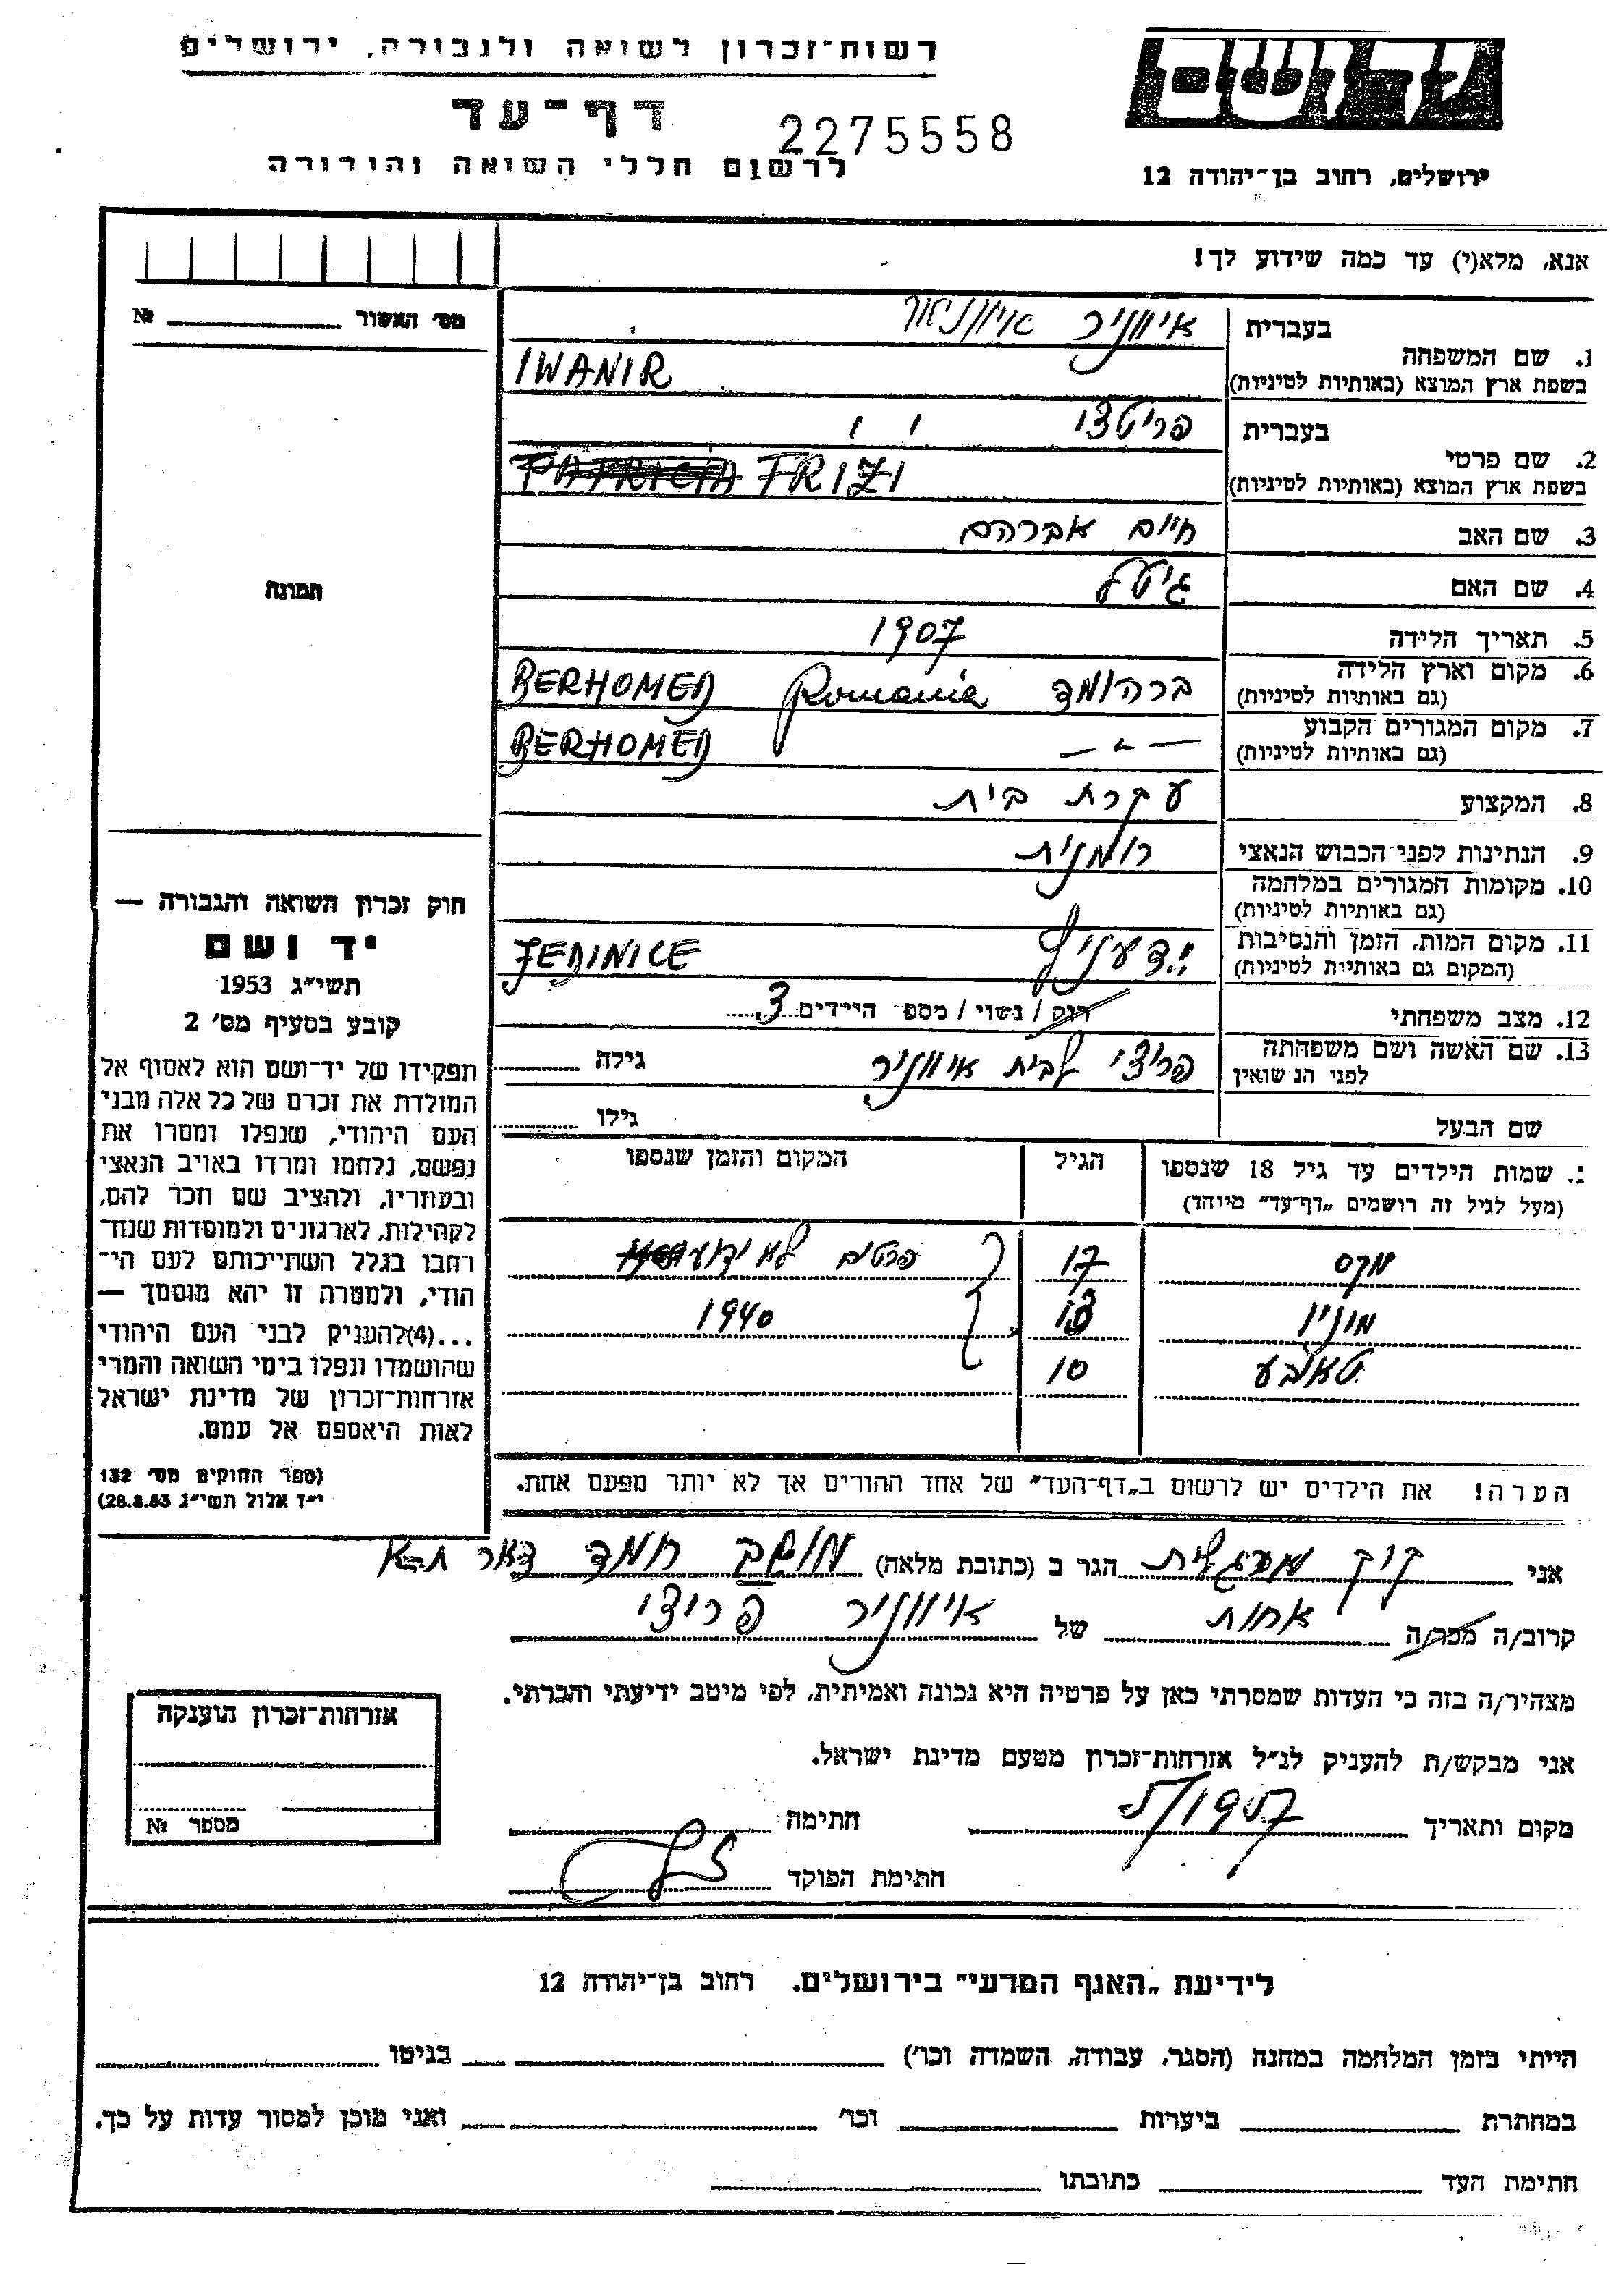 רשות־זכרון לשואה ולגבורה, ירושלים
יד ושם
דף־עד
2275558
לרשום חללי השואה והגבורה
ירושלים, רחוב בן־יהודה 12
אנא, מלא(י) עד כמה שידוע לך!
מס׳ האשור № 
בעברית איווניר
1. שם המשפחה
בשפת ארץ המוצא (באותיות לטיניות) IWANIR
בעברית פריטצי
2. שם פרטי
בשפת ארץ המוצא (באותיות לטיניות) PATRICIA FRIZI
3. שם האב חיים אברהם
4. שם האם גיטל
תמונה
5. תאריך הלידה 1907
6. מקום וארץ הלידה ברהומד Romania BERHOMED
(גם באותיות לטיניות)
7. מקום המגורים הקבוע BERHOMED
(גם באותיות לטיניות)
8. המקצוע עקרת בית
9. הנתינות לפני הכבוש הנאצי רומנית
10. מקומות המגורים במלחמה
(גם באותיות לטיניות)
11. מקום המות, הזמן והנסיבות JEDINICE
(המקום גם באותיות לטיניות)
12. מצב משפחתי רווק / נשוי / מספר הילדים 3
13. שם האשה ושם משפחתה פריצי לבית איווניר גילה
לפני הנשואין
שם הבעל גילו
חוק זכרון השואה והגבורה —
יד ושם
תשי״ג 1953
קובע בסעיף מס׳ 2
תפקידו של יד־ושם הוא לאסוף אל
המולדת את זכרם של כל אלה מבני
העם היהודי, שנפלו ומסרו את
נפשם, נלחמו ומרדו באויב הנאצי
ובעוזריו, ולהציב שם וזכר להם,
לקהילות, לארגונים ולמוסדות שנח־
רבו בגלל השתייכותם לעם הי־
הודי, ולמטרה זו יהא מוסמך —
...(4)להעניק לבני העם היהודי
שהושמדו ונפלו בימי השואה והמרי
אזרחות־זכרון של מדינת ישראל
לאות היאספם אל עמם.
(ספר החוקים מס׳ 132
י״ז אלול תשי״ג 28.8.53)
שמות הילדים עד גיל 18 שנספו הגיל המקום והזמן שנספו
(מעל לגיל זה רושמים „דף־עד״ מיוחד)
מקס 17 פרטים לא ידוע
מוניו 13 1940
טאובע 10
הערה! את הילדים יש לרשום ב„דף־העד״ של אחד ההורים אך לא יותר מפעם אחת.
אני קוק מרגלית הגר ב (כתובת מלאה) מושב חמד דאר ת–א
קרוב/ה מכר/ה אחות של איווניר פריצי
מצהיר/ה בזה כי העדות שמסרתי כאן על פרטיה היא נכונה ואמיתית, לפי מיטב ידיעתי והכרתי.
אני מבקש/ת להעניק לנ״ל אזרחות־זכרון מטעם מדינת ישראל.
מקום ותאריך חתימה
חתימת הפוקד
אזרחות־זכרון הוענקה
מספר №
לידיעת „האגף המדעי״ בירושלים. רחוב בן־יהודה 12
הייתי בזמן המלחמה במחנה (הסגר, עבודה, השמדה וכו׳) בגיטו
במחתרת ביערות וכו׳ ואני מוכן למסור עדות על כך.
חתימת העד כתובתו